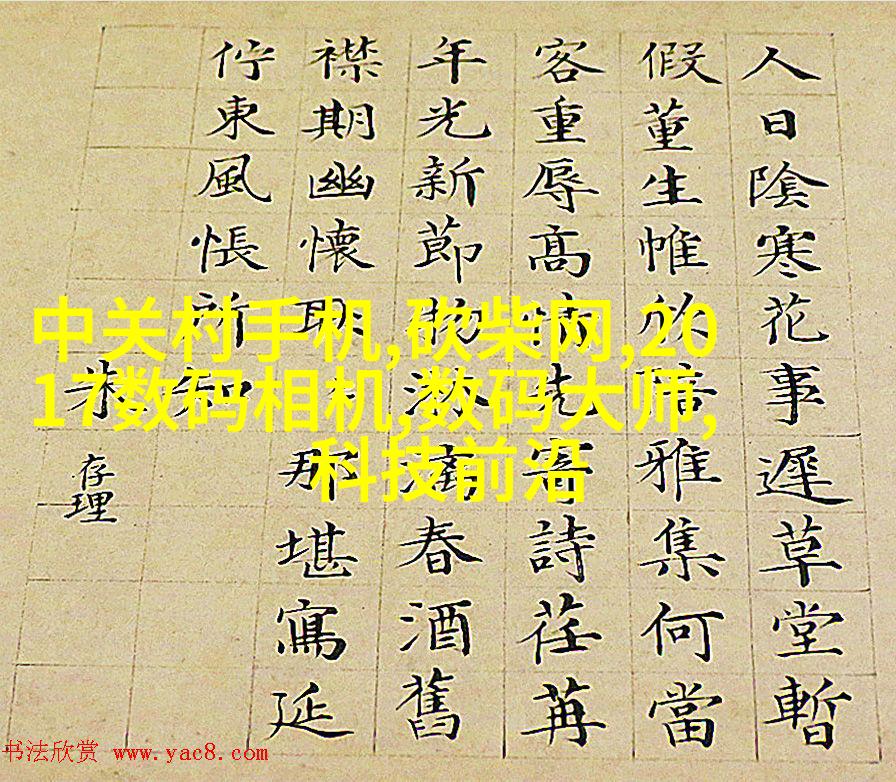 人日陰寒花事遲草堂暫
假董生帷欣陪雅集何當
客重辱高情先寄詩荏苒
年光新節物淋漓春酒舊
襟期幽懷耿那堪寫延
佇東風悵所知
朱存理
中关村手机,砍柴网,20
17数码相机,数码大师,
科技前沿
书法欣赏 www.yac8.com